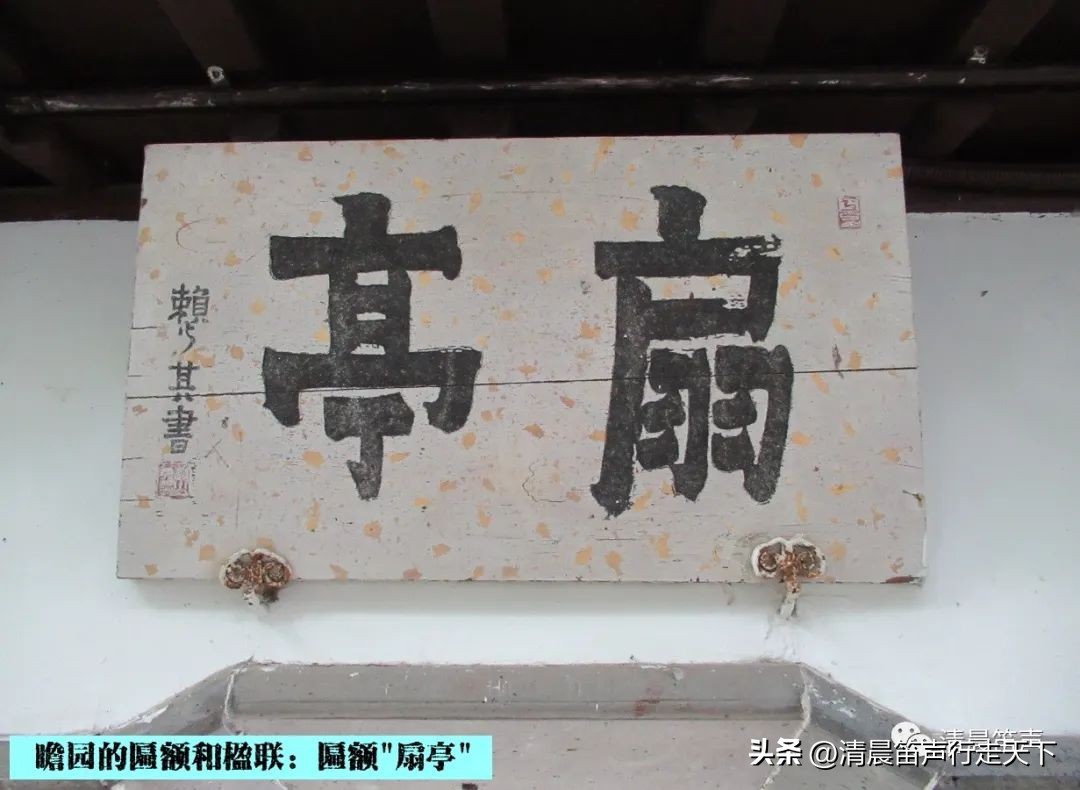 扇亭
賴少其書
瞻园的匾额和楹联：匾额"扇亭"
清晨笛声
头条 @清晨笛声行走天下